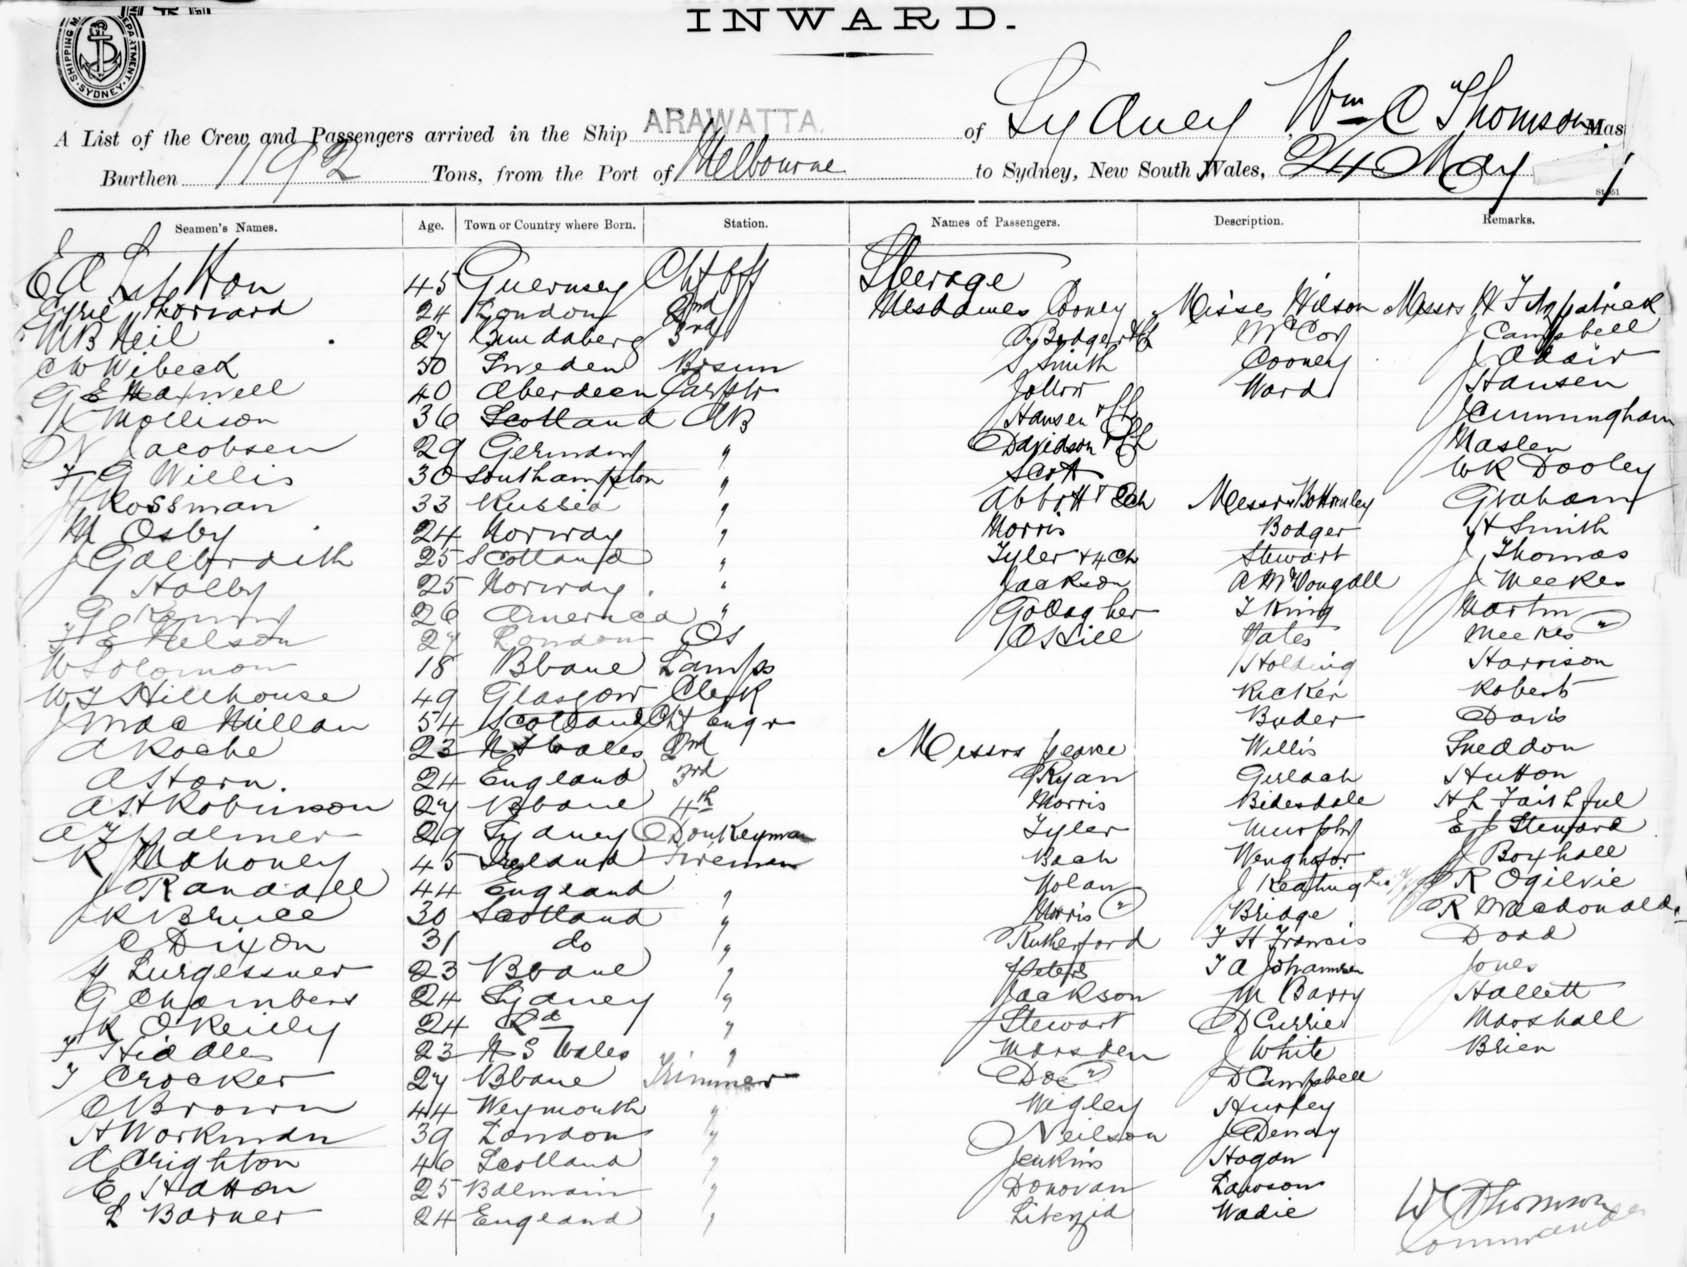 INWARD.
SHIPPING MASTER'S DEPARTMENT. SYDNEY
A List of the Crew and Passengers arrived in the Ship ARAWATTA of Sydney, Wm C Thomson Mas
Burthen 1192 Tons, from the Port of Melbourne to Sydney, New South Wales, 24 May 1
Seamen's Names. Age. Town or Country where Born. Station. Names of Passengers. Description. Remarks.
E A 45 Guernsey Ch Off Steerage
24 London 2nd Mesdames Cooney Misses Wilson Messrs H Fitzpatrick
W B Neil 27 Bundaberg 3rd Bodger McCoy J Campbell
C W Wibeck 50 Sweden Bosun S Smith Cooney J Adair
G E Maxwell 40 Aberdeen Carptr Ward Hansen
Mollison 36 Scotland AB Hansen J Cunningham
N Jacobsen 29 Germany " Davidson Maslen
F G Willis 30 Southampton " Scott W R Dooley
J Rossman 33 Russia " Abbott + Ch Messrs Bottomley Graham
M Osby 24 Norway " Morris Bodger H Smith
J Galbraith 25 Scotland " Tyler + 4 Ch Stewart J Thomas
Halby 25 Norway " Jackson A McDougall J Meekes
G 26 America " Gallagher T King Martin
F E Nelson 27 London OS Yates Meekes "
W Solomon 18 Bbane Lamps Holding Harrison
W T Hillhouse 49 Glasgow Clerk Ricker Roberts
J MacMillan 54 Scotland Ch Engr Buder Davis
A Roche 23 N S Wales 2nd Messrs Willis Sneddon
A Horn. 24 England 3rd Ryan Gerlach Hutton
A H Robinson 27 Bbane 4th Morris Bidesdale H L Faithful
A F Palmer 29 Sydney Donkeyman Tyler Murphy E J Steward
R Mahoney 45 Ireland Fireman Bach J Boxhall
J Randall 44 England " Nolan J Keating R Ogilvie
J R Bruce 30 Scotland " Morris " Bridge R Macdonald
C Dixon 31 do " Rutherford F H Francis Dodd
Lurgessner 23 Bbane " Peters F A Johannsen Jones
G Chambers 24 Sydney " Jackson M Barry Hallett
R O'Reilly 24 " Stewart D Currie Marshall
F Hiddles 23 N S Wales " Marsden J White Brien
T Crocker 27 Bbane Trimmer Doe " D Campbell
C Brown 44 Weymouth " Wigley Hurley
H Workman 39 London " Neilson J Denay
A Crighton 46 Scotland " Jenkins Hogan
E Hatton 25 Balmain " Donovan Lawson
L Barner 24 England " Wadie
W C Thomson
Commander